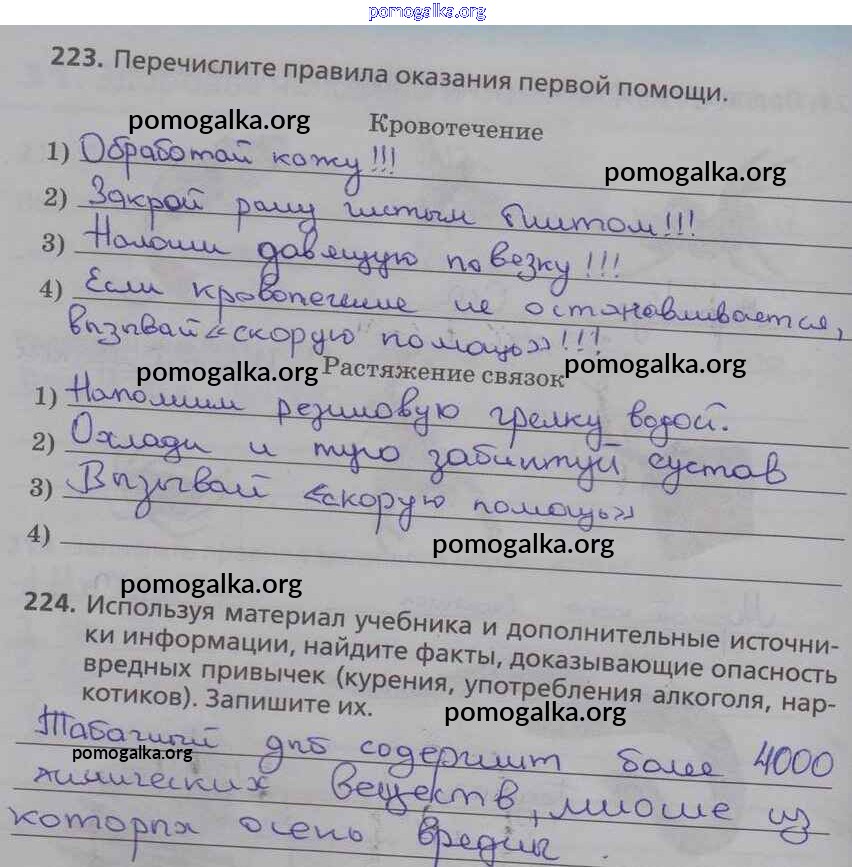 pomogalka.org
223. Перечислите правила оказания первой помощи.
pomogalka.org
Кровотечение
1) Обработай кожу!!!
pomogalka.org
2) Закрой рану чистым бинтом!!!
3) Наложи давящую повезку!!!
4) Если кровотечение не останавливается,
вызывай «скорую помощь»!!!
pomogalka.org
Растяжение связок
pomogalka.org
1) Наполним резиновую грелку водой.
2) Охлади и туго забинтуй сустав
3) Вызывай «скорую помощь»
4)
pomogalka.org
pomogalka.org
224. Используя материал учебника и дополнительные источни-
ки информации, найдите факты, доказывающие опасность
вредных привычек (курения, употребления алкоголя, нар-
котиков). Запишите их.
pomogalka.org
Табачный дыб содержит более 4000
pomogalka.org
химических веществ, многие из
которых очень вредны.